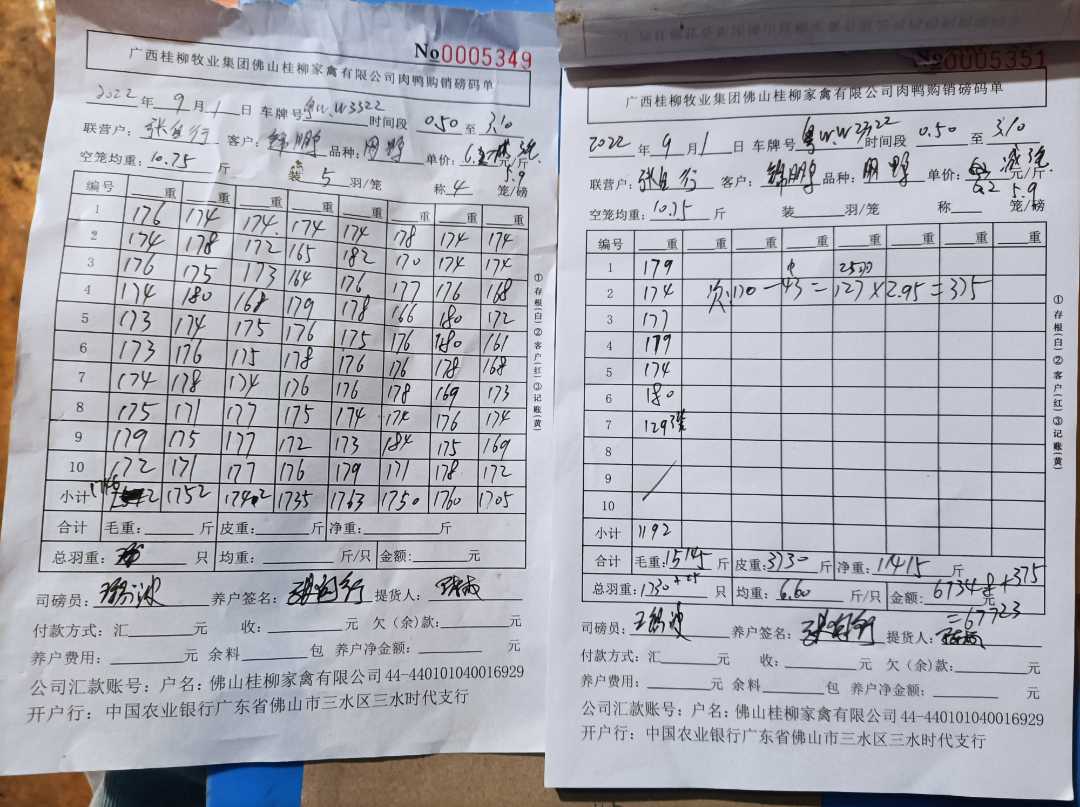 No0005349
广西桂柳牧业集团佛山桂柳家禽有限公司肉鸭购销磅码单
2022年9月1日 车牌号粤W.W3322时间段 0.50 至 3.10
联营户: 张 行 客户: 锦鹏 品种: 单价: 元/斤 5.9
空笼均重: 10.75 斤 装 5 羽/笼 称 4 笼/磅
编号 重 重 重 重 重 重 重 重
1 176 174 174. 174 174 178 174 174
2 174 178 172 165 182 170 174 174
3 176 175 173 164 176 177 176 168
4 174 180 168 179 178 166 180 172
5 173 174 175 176 175 176 180 161
6 173 176 175 178 176 176 178 168
7 174 178 174 176 176 178 169 173
8 175 171 177 175 174 174 176 174
9 179 175 177 172 173 184 175 169
10 172 171 177 176 179 171 178 172
小计 1746 1752 1742 1735 1763 1750 1760 1705
合计 毛重: 斤 皮重: 斤 净重: 斤
总羽重: 只 均重: 斤/只 金额: 元
司磅员: 养户签名: 提货人:
付款方式:汇 元 收: 元 欠(余)款: 元
养户费用: 元 余料 包 养户净金额: 元
公司汇款账号:户名:佛山桂柳家禽有限公司44-440101040016929
开户行:中国农业银行广东省佛山市三水区三水时代支行
①存根(白)②客户(红)③记账(黄)
No0005351
广西桂柳牧业集团佛山桂柳家禽有限公司肉鸭购销磅码单
2022年9月1日 车牌号粤W.W3322时间段 0.50 至 3.10
联营户: 张 行 客户: 锦鹏 品种: 单价: 6.2 元/斤 5.9
空笼均重: 10.75 斤 装 羽/笼 称 笼/磅
编号 重 重 重 重 重 重 重 重
1 179 25羽
2 174 次:170-43=127×2.95=375
3 177
4 179
5 174
6 180
7 129 3笼
8
9
10
小计 1192
合计 毛重:15145 斤 皮重:3730 斤 净重:11415 斤
总羽重:1730+25 只 均重:6.60 斤/只 金额: 67348+375 元
=67723
司磅员: 养户签名: 提货人:
付款方式:汇 元 收: 元 欠(余)款: 元
养户费用: 元 余料 包 养户净金额: 元
公司汇款账号:户名:佛山桂柳家禽有限公司44-440101040016929
开户行:中国农业银行广东省佛山市三水区三水时代支行
①存根(白)②客户(红)③记账(黄)